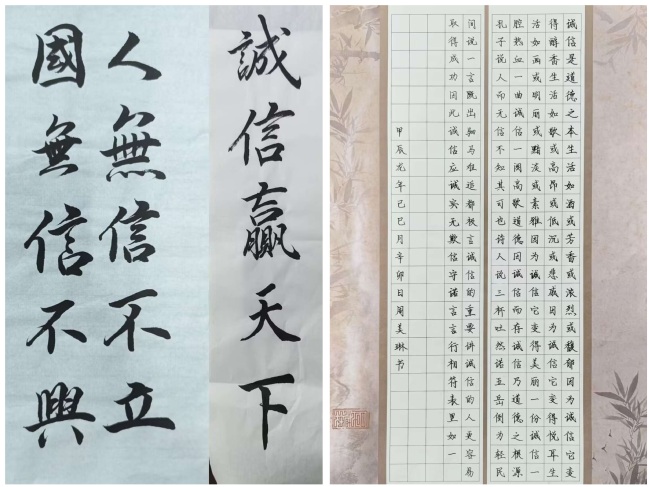 人無信不立
國無信不興
誠信贏天下
诚信是道德之本生活如酒或芳香或浓烈或馥郁因为诚信它变
得醇香生活如歌或高昂或低沉或悲戚因为诚信它变得悦耳生
活如画或明丽或黯淡或素雅因为诚信它变得美丽一份诚信一
腔热血一曲诚信一阕高歌道德因诚信而存诚信乃道德之根源
孔子说人而无信不知其可也诗人说三杯吐然诺五岳倒为轻民
间说一言既出驷马难追都极言诚信的重要讲诚信的人更容易
取得成功因此诚信应诚实无欺信守诺言言行相符表里如一
甲辰龙年己巳月辛卯日周美琳书